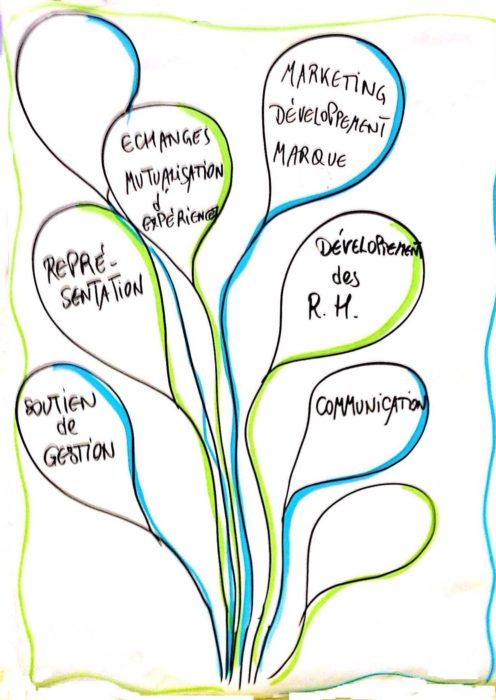 MARKETING
DÉVELOPPEMENT
MARQUE
ECHANGES
MUTUALISATION
d'
EXPÉRIENCES
REPRÉ-
SENTATION
DÉVELOPPEMENT
des
R. H.
SOUTIEN
de
GESTION
COMMUNICATION